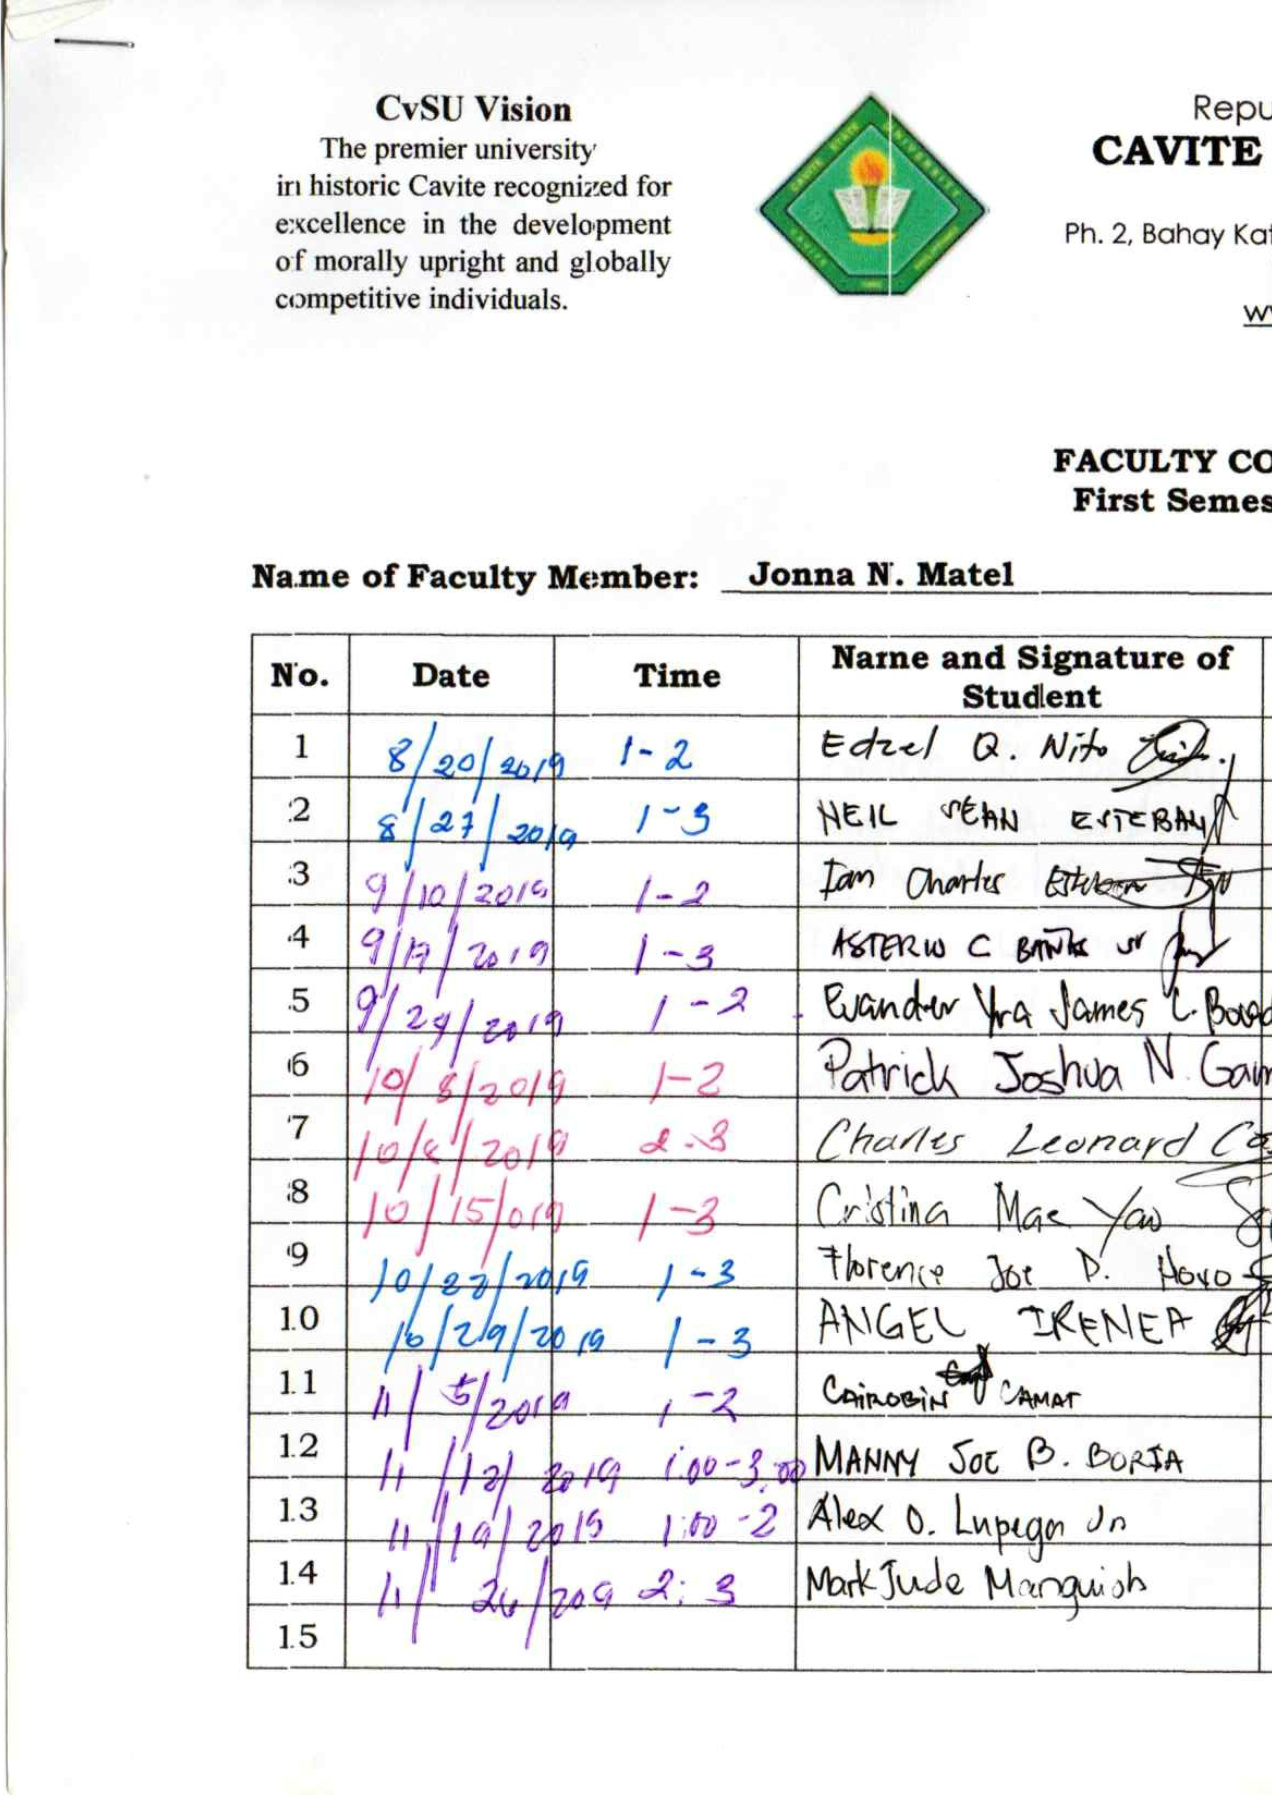 CvSU Vision
The premier university
in historic Cavite recognized for
excellence in the development
of morally upright and globally
competitive individuals.
CAVITE STATE UNIVERSITY
Repu
CAVITE
Ph. 2, Bahay Kat
w
FACULTY CO
First Semes
Name of Faculty Member: Jonna N. Matel
No. Date Time Name and Signature of Student
1 8/20/2019 1-2 Edzel Q. Nito
2 8/27/2019 1-3 NEIL SEAN ESTEBAN
3 9/10/2019 1-2 Ian Charles
4 9/17/2019 1-3 C
5 9/24/2019 1-2 Evander James C.
6 10/8/2019 1-2 Patrick Joshua N.
7 10/8/2019 2-3 Charles Leonard
8 10/15/019 1-3 Cristina Mae Yao
9 10/22/2019 1-3 Florence Joe D.
10 10/29/2019 1-3 ANGEL IRENEA
11 11/5/2019 1-2 CAIROBIN CAMAT
12 11/12/2019 1:00-3:00 MANNY JOE B. BORJA
13 11/19/2019 1:00-2 Alex O. Jr
14 11/26/209 2:3 Mark Jude
15